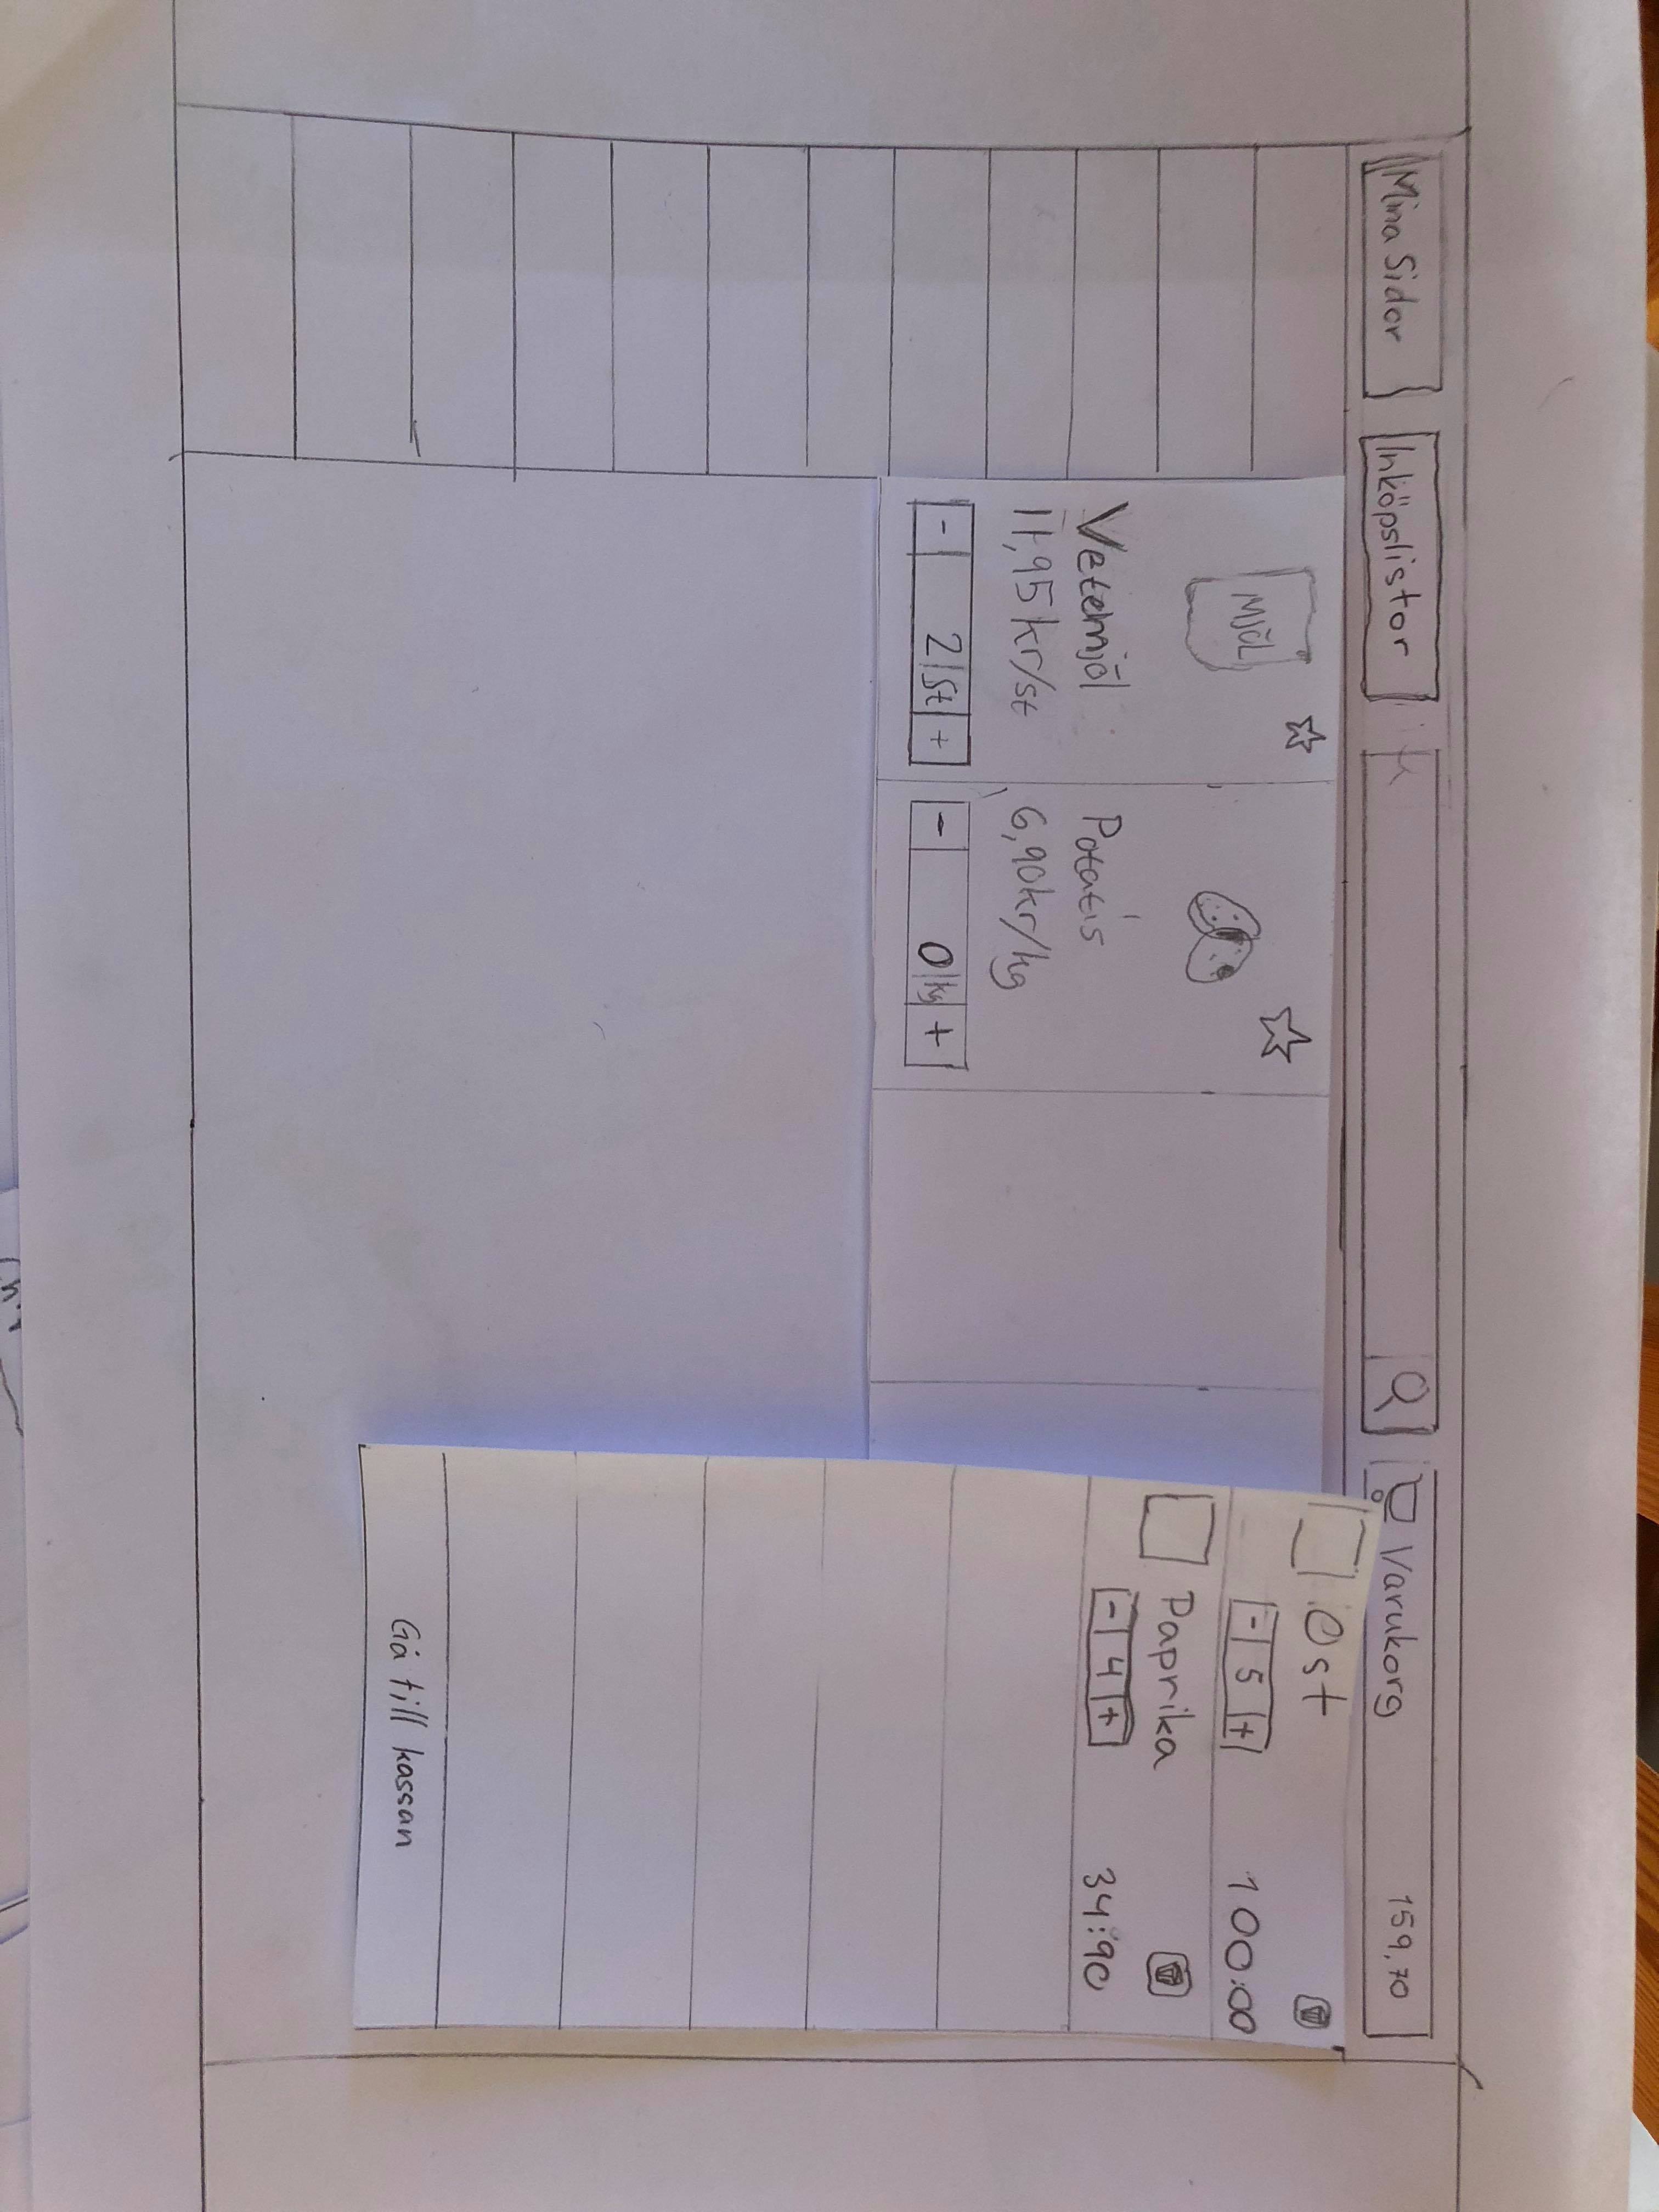 Mina Sidor
Inköpslistor
Varukorg 159,70
MJÖL
Vetemjöl
11,95 kr/st
- 2 st +
Potatis
6,90 kr/kg
- 0 kg +
Ost
- 5 + 100:00
Paprika
- 4 + 34:90
Gå till kassan